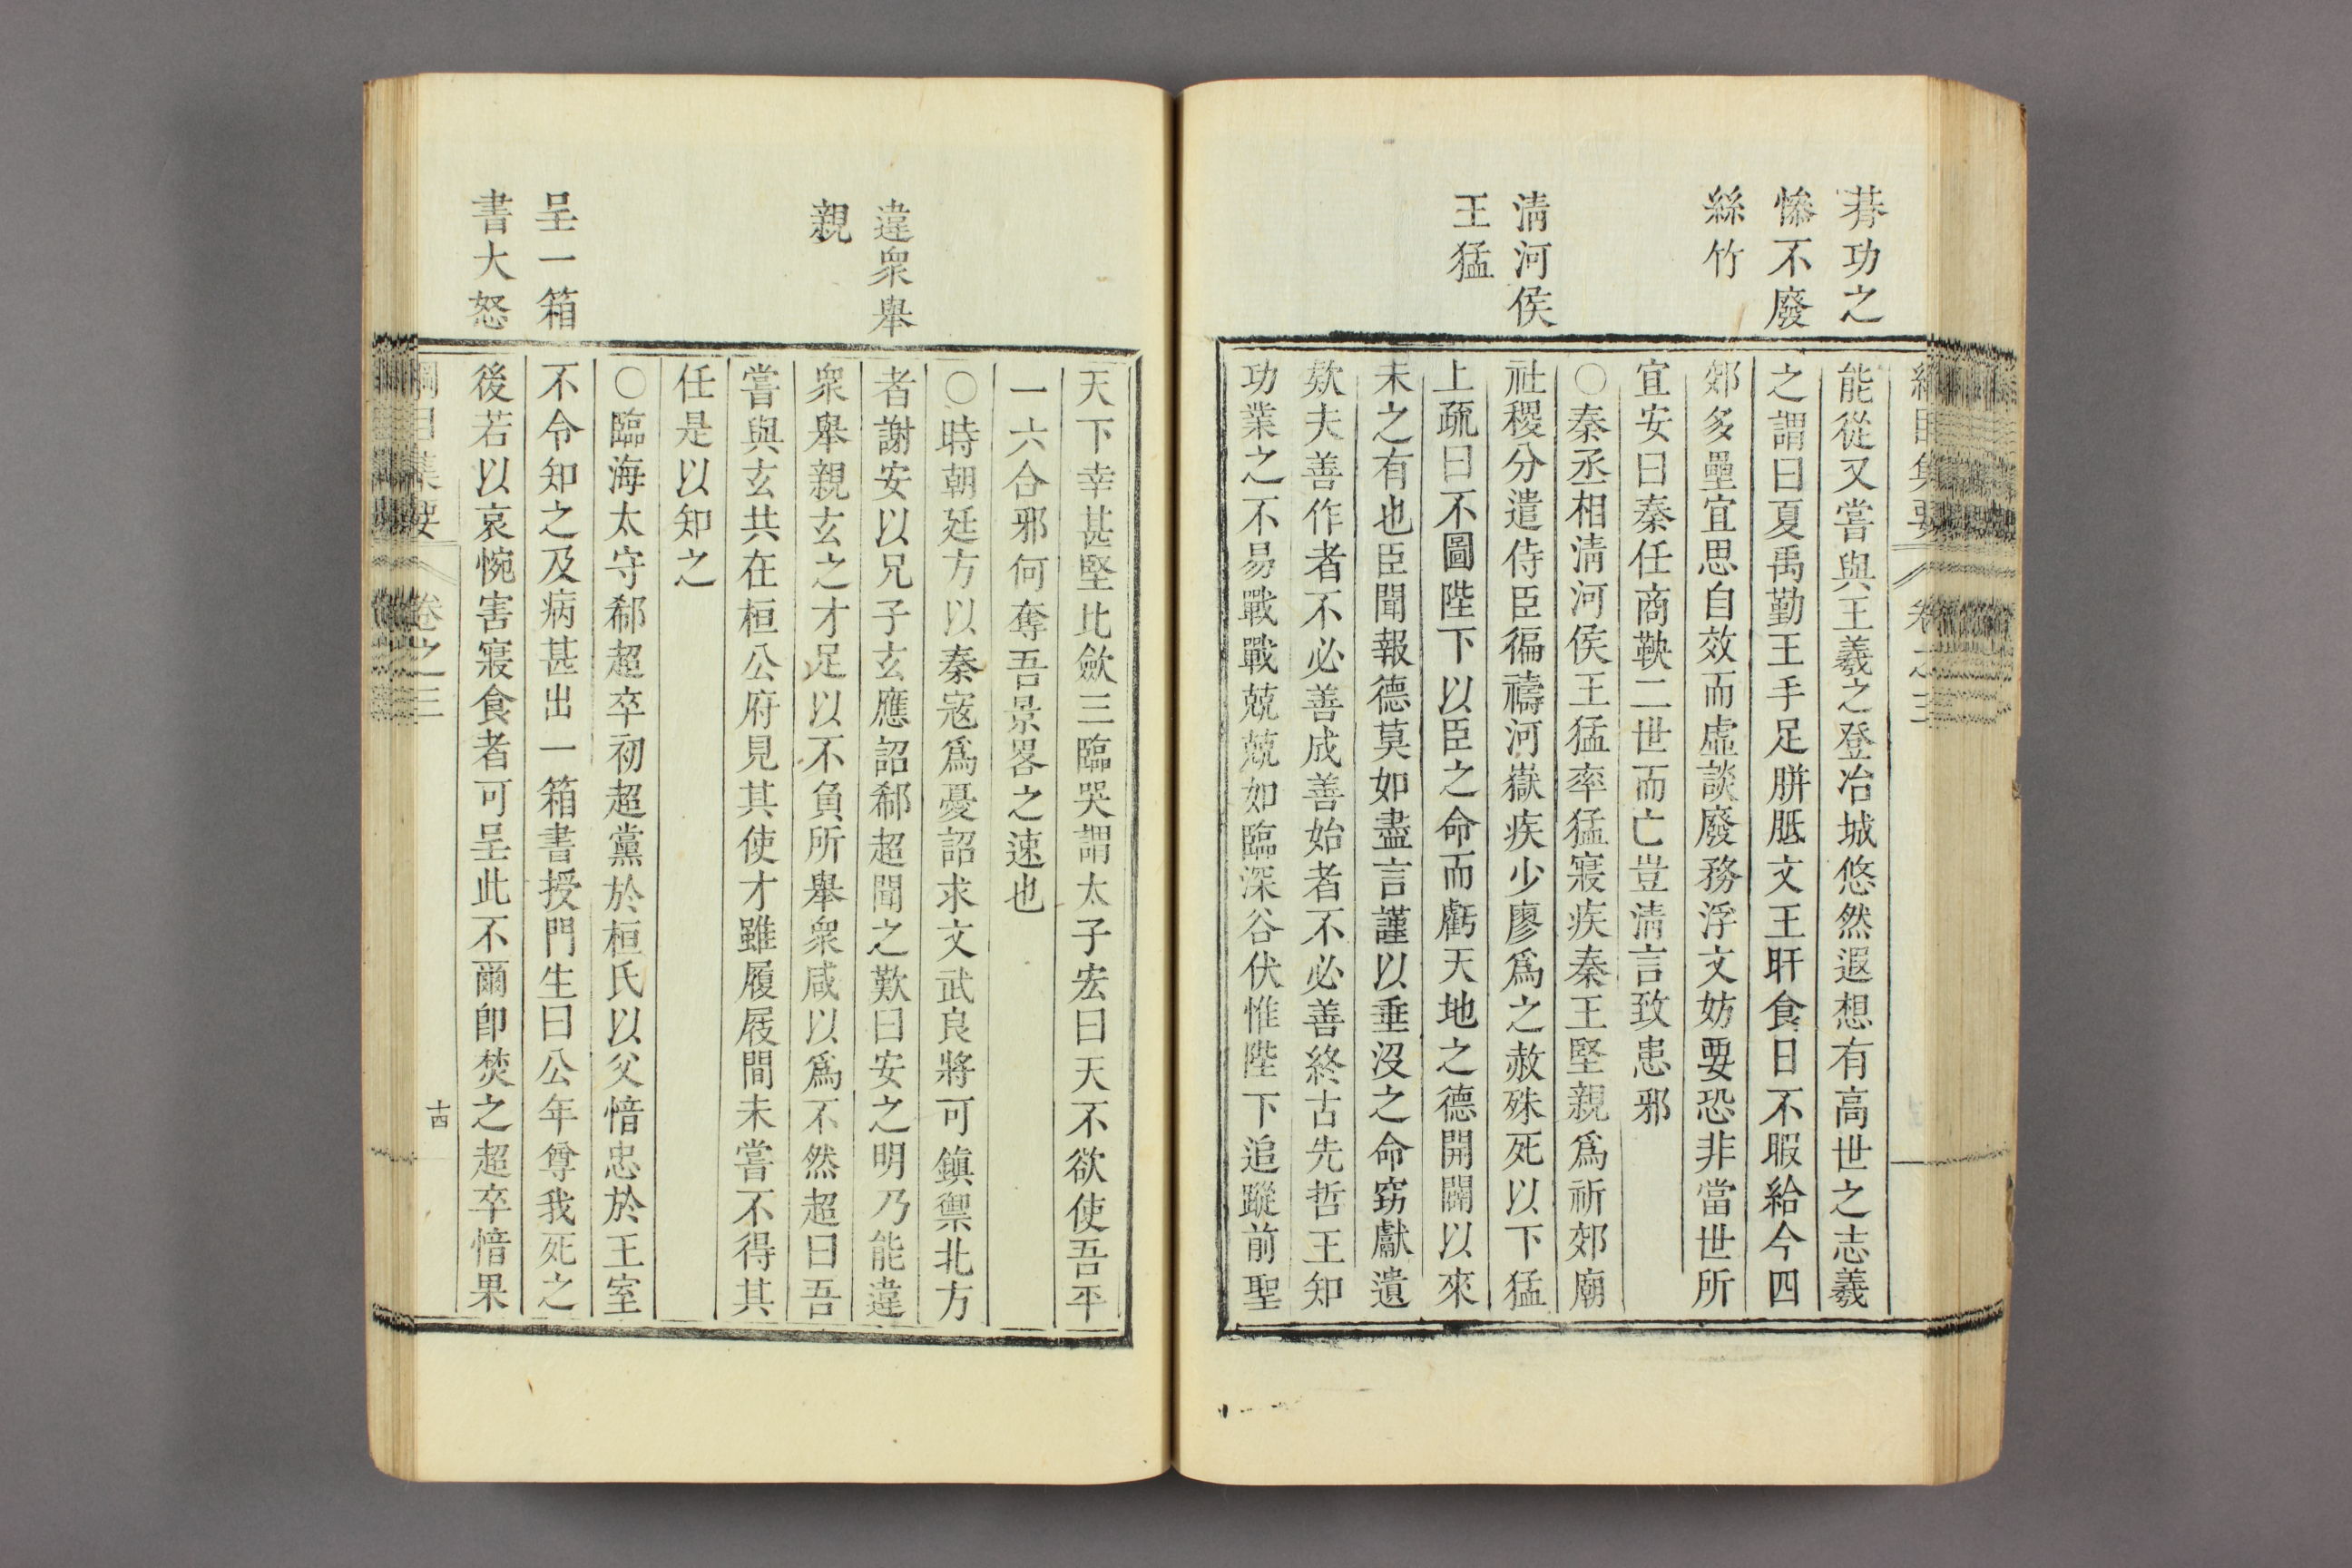 朞功之
慘不廢
絲竹
清河侯
王猛
能從又嘗與王羲之登冶城悠然遐想有高世之志羲
之謂曰夏禹勤王手足胼胝文王旰食日不暇給今四
郊多壘宜思自效而虛談廢務浮文妨要恐非當世所
宜安曰秦任商鞅二世而亡豈清言致患邪
○秦丞相清河侯王猛率猛寢疾秦王堅親爲祈郊廟
社稷分遣侍臣徧禱河嶽疾少廖爲之赦殊死以下猛
上疏曰不圖陛下以臣之命而虧天地之德開闢以來
未之有也臣聞報德莫如盡言謹以垂沒之命窈獻遺
欵夫善作者不必善成善始者不必善終古先哲王知
功業之不易戰戰兢兢如臨深谷伏惟陛下追蹤前聖
違衆舉
親
呈一箱
書大怒
天下幸甚堅比斂三臨哭謂太子宏曰天不欲使吾平
一六合邪何奪吾景畧之速也
○時朝廷方以秦寇爲憂詔求文武良將可鎮禦北方
者謝安以兄子玄應詔郗超聞之歎曰安之明乃能違
衆舉親玄之才足以不負所舉衆咸以爲不然超曰吾
嘗與玄共在桓公府見其使才雖履屐間未嘗不得其
任是以知之
○臨海太守郗超卒初超黨於桓氏以父愔忠於王室
不令知之及病甚出一箱書授門生曰公年尊我死之
後若以哀惋害寢食者可呈此不爾卽焚之超卒愔果
綱目集要 卷之三
十四